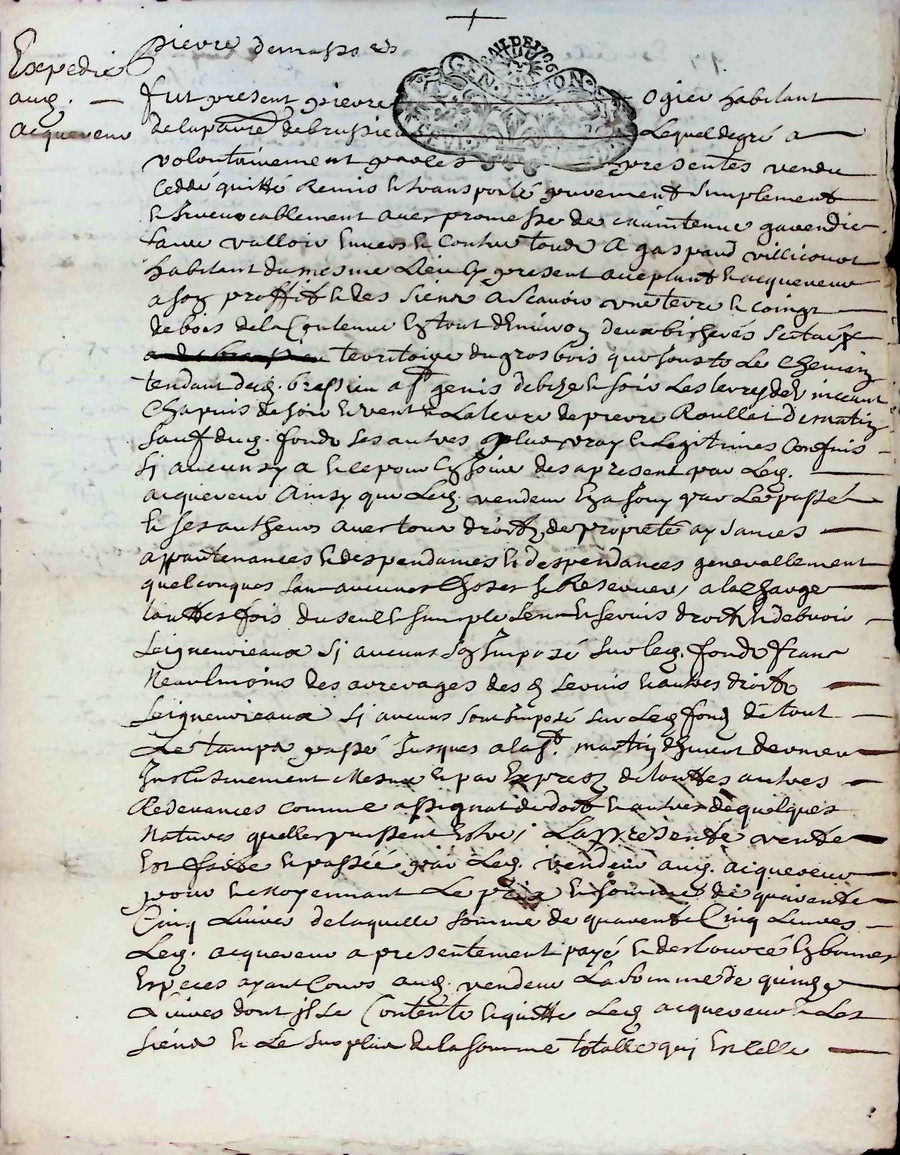 pierre demassres
Expedié
aud.
acquereur
GEN ON
AU DE 1706
fut present pierre ogier habitant
de la paur. de brussieu Lequel de gré a
volontairement par les presentes vendu
ceddé quitté Remis et transporté purement simplement
et Irrevocablement avec promesse de maintenir garendir
faire valloir Envers et Contre tous A gaspard villicourt
habitant du mesme Lieu Icy present acceptant et acquereur
a son proffit et des siens A scavoir une terre et coing
de bois de la Contenue En tout d'Environ deux bicherés scitués
territoire du gros bois que Jouste Le Chemin
tendant dud. bressieu a st. genis de bize et soir Les terres de Vincent
Chapuis de soir et vent La terre de pierre Roullet de matin
sauf dud. fonds ses autres plus vrays et Legitimes Confins
sy aucuns y a et ce pour En Jouir des a present par Led.
acquereur Ainsy que Led. vendeur En a Jouy par Le passé
et ses autheurs avec tous droits de proprieté aysances
appartenances et despendances generallement
quelconques sans aucunes Choses se Reserver, a la Charge
touttesfois du seul et simple Cens et servis droits et debvoir
seigneuriaux sy aucuns son Imposé sur led. fonds franc
Neaulmoins des arrerages desd servis et autres droits
seigneuriaux sy aucuns sont Imposé sur Led fond de tout
Le temps passé Jusques a la st. martin d'hiver dernier
Inclusivement Mesme et par Exprez de touttes autres
Redevances comme assignat de dot et autres de quelques
Natures quelles puissent Estre, La presente vente
Est faite et passée par Led. vendeur aud. acquereur
pour et moyennant Le prix et somme de quarente
Cinq Livres de laquelle somme de quarente Cinq Livres
Led. acquereur a presentement payé et desboursé En bonnes
Especes ayant Cours aud. vendeur La somme de quinze
Livres dont Il se Contente et quitte Led acquereur et Les
siens et Le surplus de la somme totalle qui Est celle